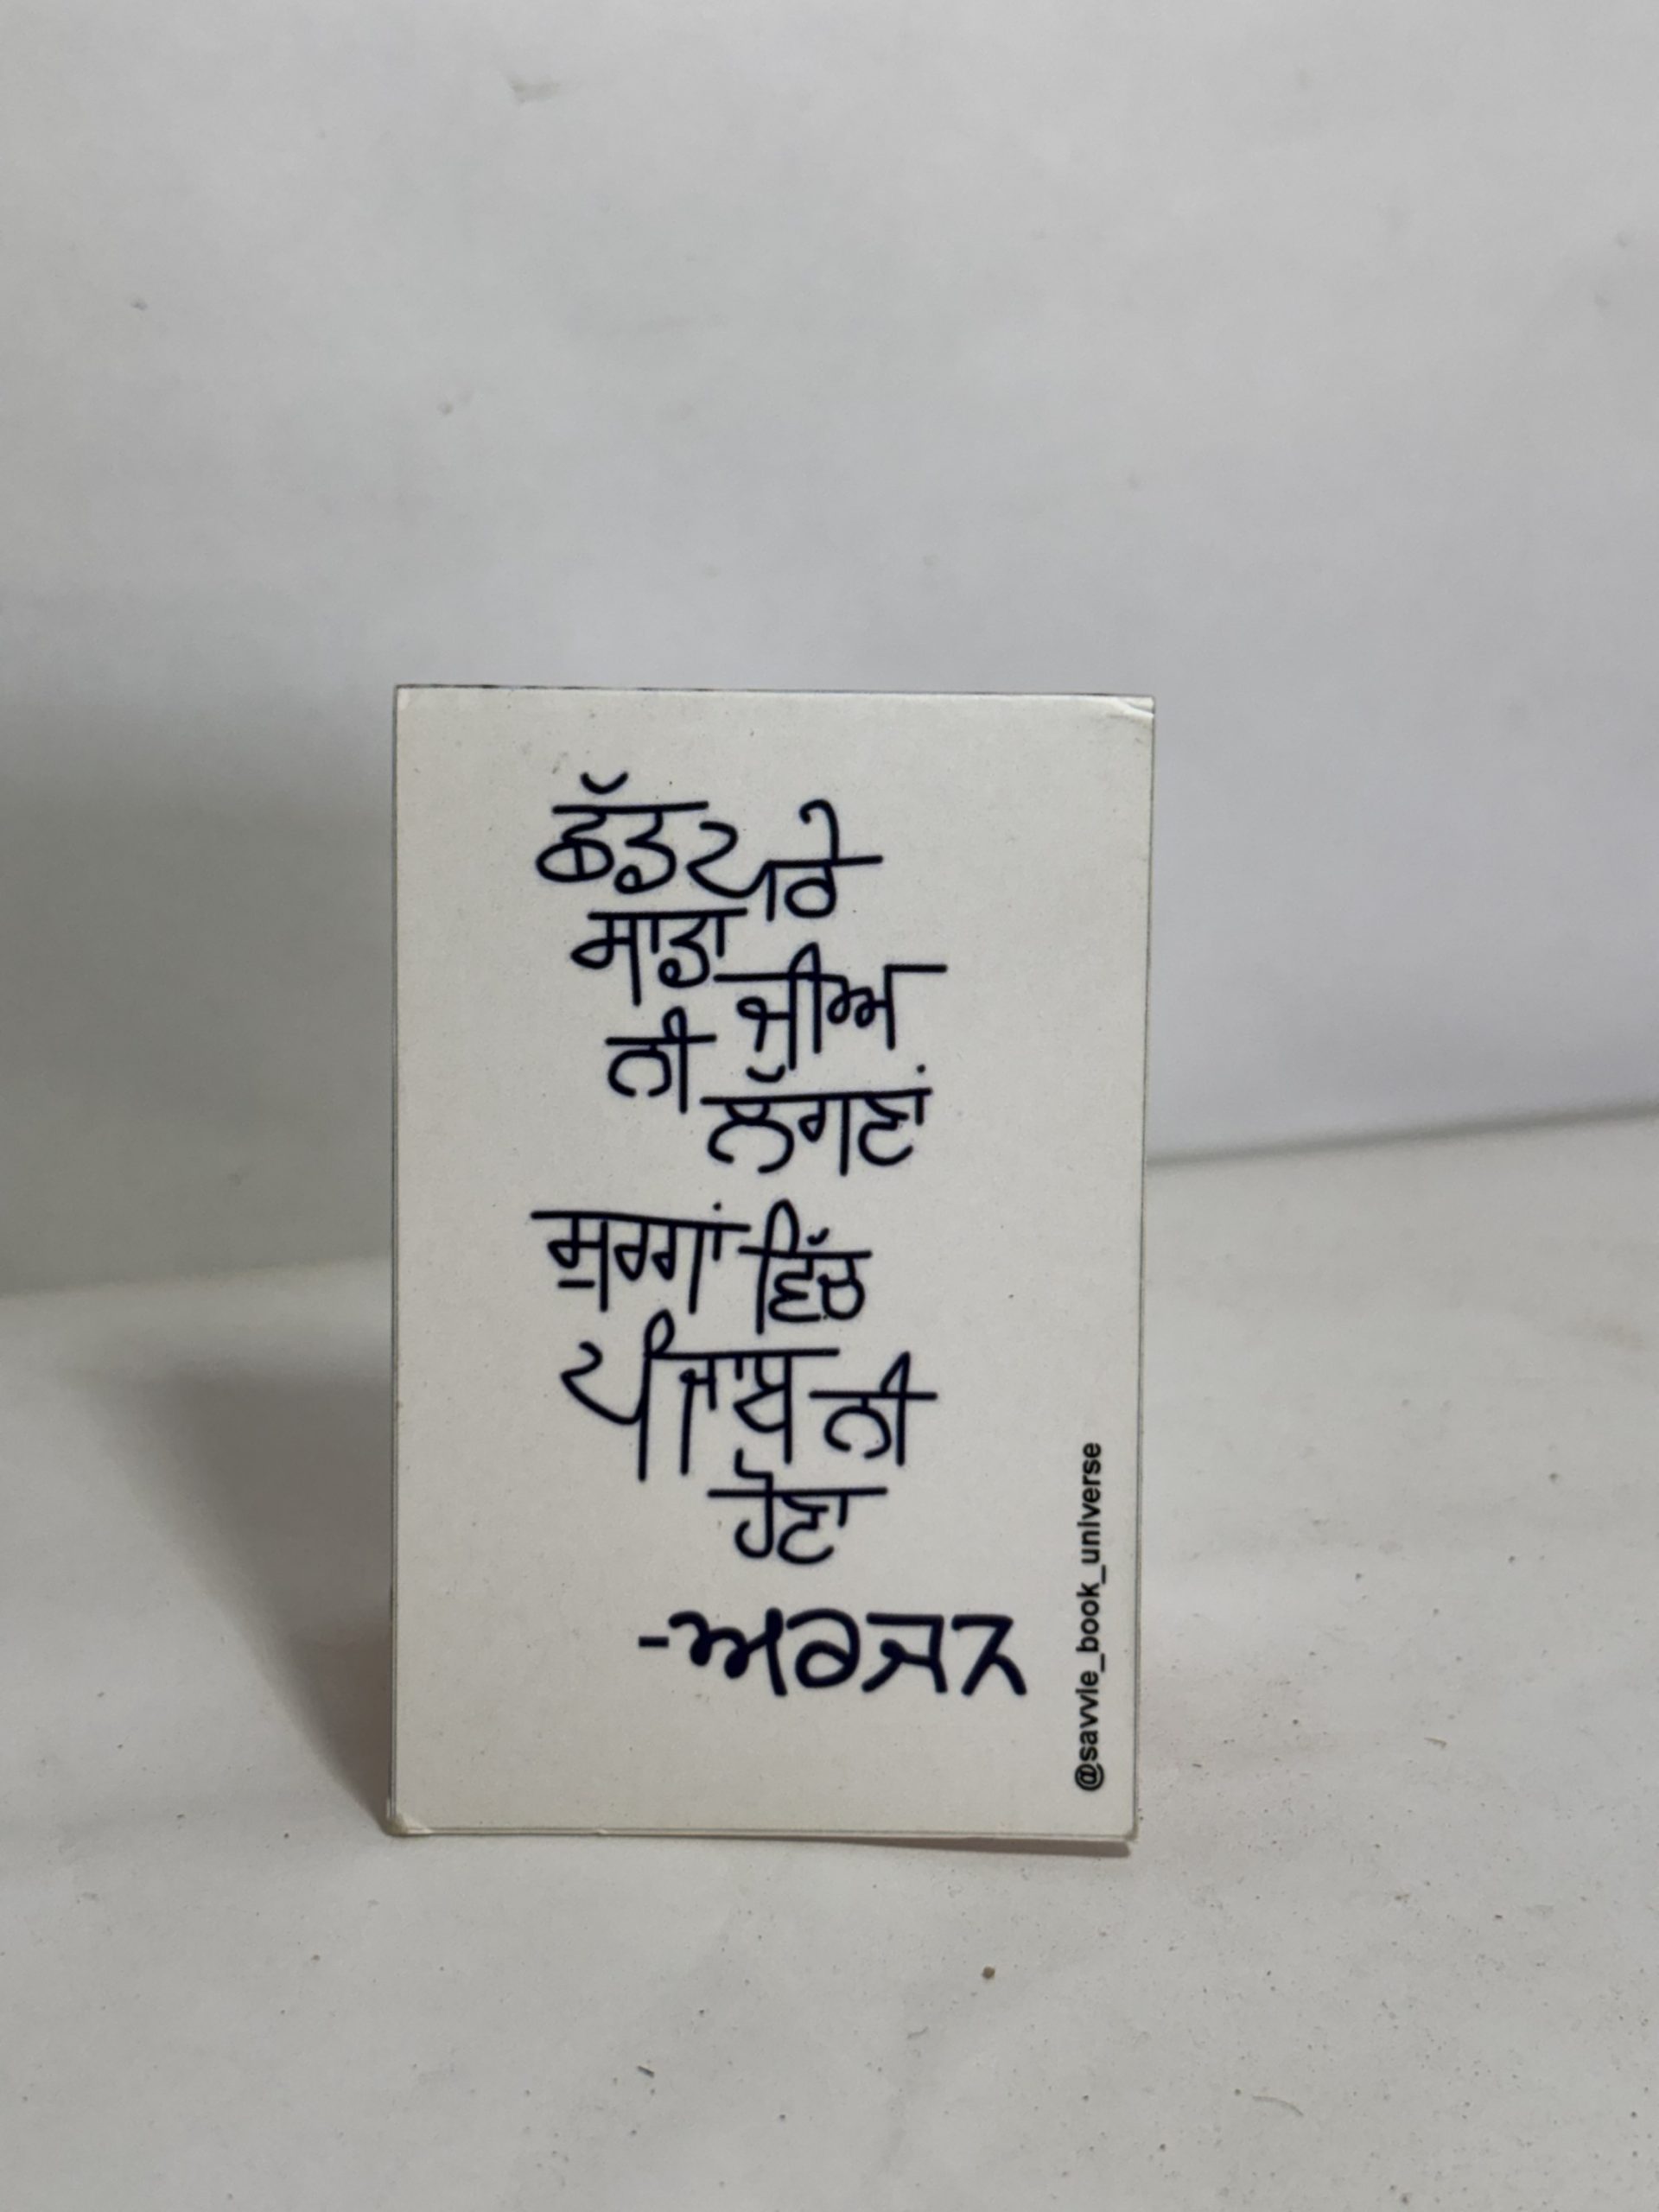 ਛੱਡ ਪਰੇ
ਸਾਡਾ ਜੀਅ
ਨੀ ਲੱਗਣਾਂ
ਸੁਰਗਾਂ ਵਿੱਚ
ਪੰਜਾਬ ਨੀ
ਹੋਣਾ
-ਅਰਜਨ
@savvle_book_universe